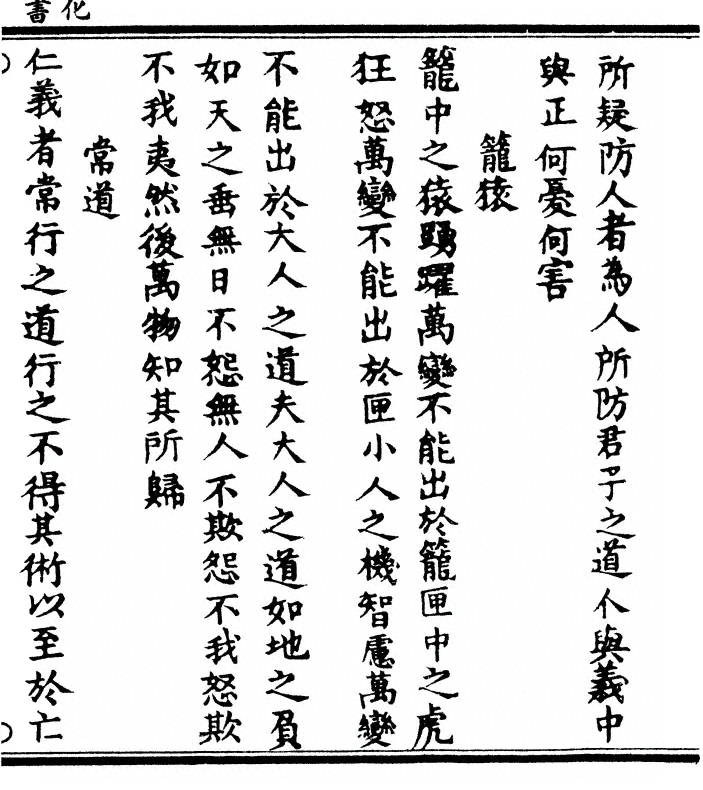 化書
所疑防人者為人所防君子之道仁與義中
與正何憂何害
籠猿
籠中之猿踴躍萬變不能出於籠匣中之虎
狂怒萬變不能出於匣小人之機智慮萬變
不能出於大人之道夫大人之道如地之負
如天之垂無日不怨無人不欺怨不我怒欺
不我夷然後萬物知其所歸
常道
仁義者常行之道行之不得其術以至於亡